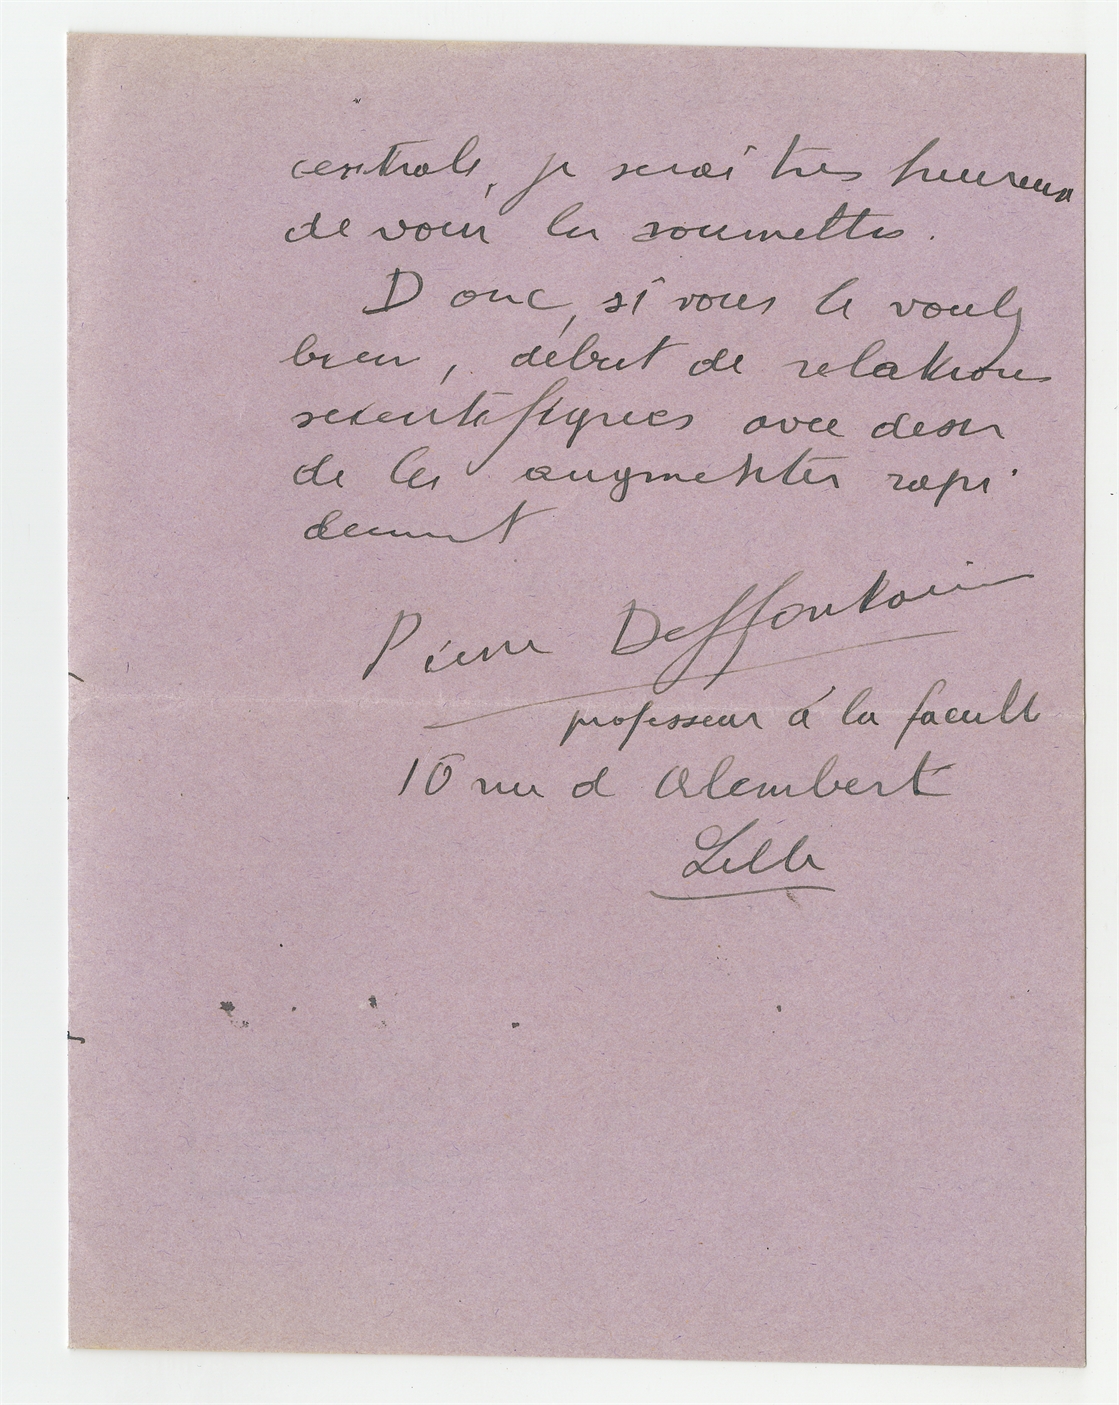 centrale, je serai très heureux
de vous les soumettre.
Donc, si vous le voulez
bien, début de relations
scientifiques avec desir
de les augmenter rapi
dement
Pierre Deffontaines
professeur à la faculté
10 rue d Alembert
Lille